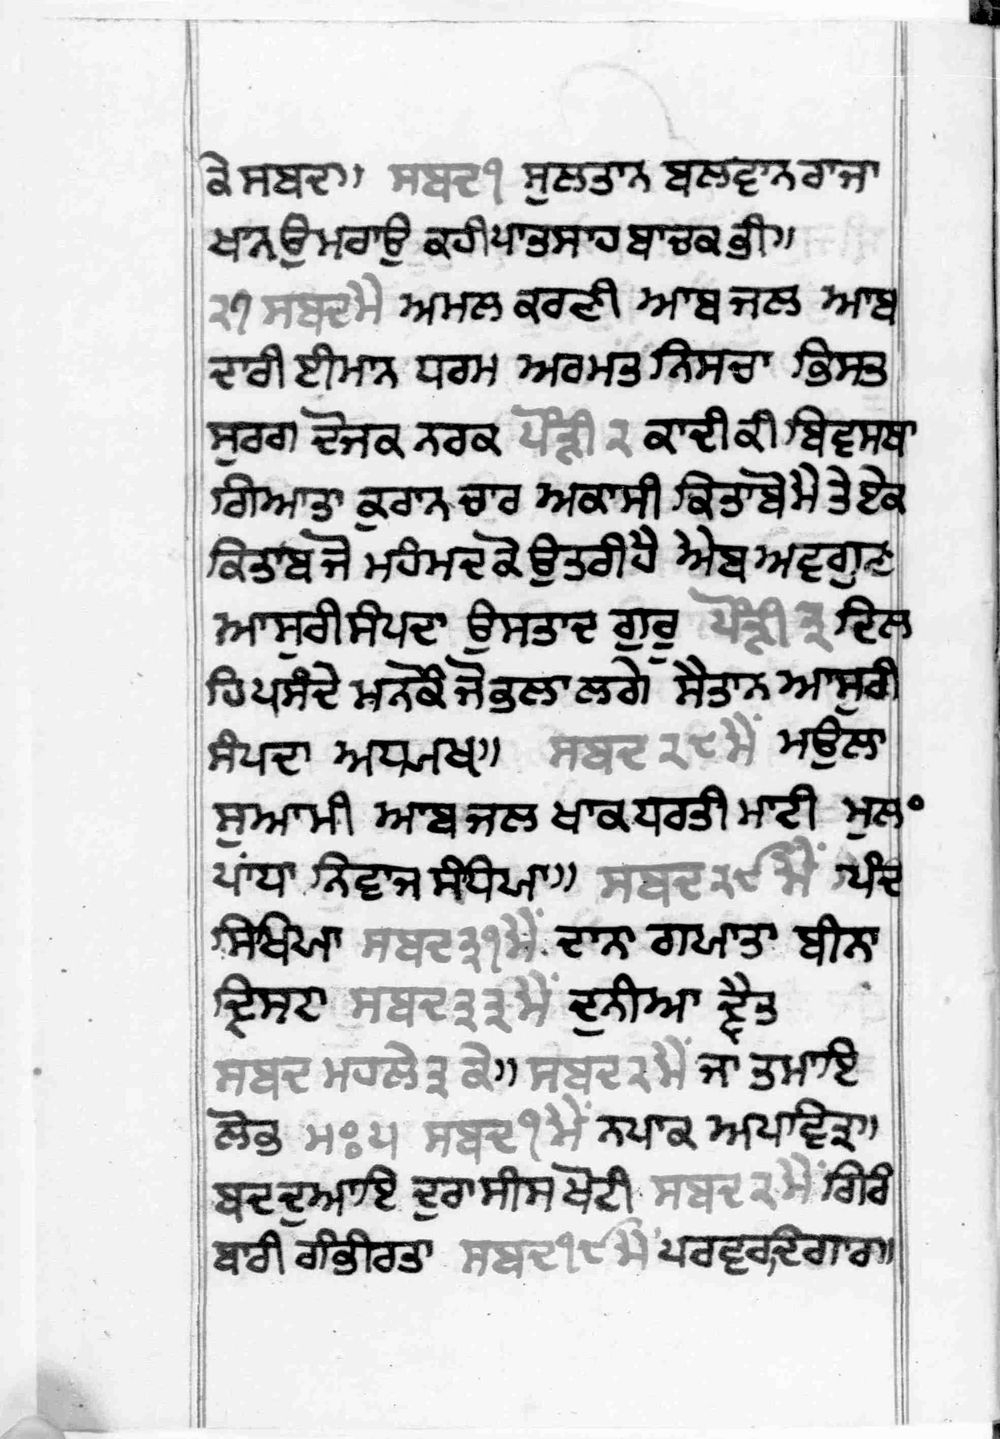 ਕੇ ਸਬਦ॥ ਸਬਦ ੧ ਸੁਲਤਾਨ ਬਲਵਾਨ ਰਾਜਾ
ਖਾਨ ਉਮਰਾਉ ਕਹੀ ਪਾਤਸਾਹ ਬਾਚਕ ਭੀ॥
੨੭ ਸਬਦ ਮੈ ਅਮਲ ਕਰਣੀ ਆਬ ਜਲ ਆਬ
ਦਾਰੀ ਈਮਾਨ ਧਰਮ ਅਰਮਤ ਨਿਸਚਾ ਭਿਸਤ
ਸੁਰਗ ਦੋਜਕ ਨਰਕ ਪੌੜੀ ੨ ਕਾਦੀ ਕੀ ਬਿਵਸਥਾ
ਗਿਆਤਾ ਕੁਰਾਨ ਚਾਰ ਅਕਾਸੀ ਕਿਤਾਬੋ ਮੈ ਤੇ ਏਕ
ਕਿਤਾਬ ਜੋ ਮਹੰਮਦ ਕੋ ਉਤਰੀ ਹੈ ਐਬ ਅਵਗੁਣ
ਆਸੁਰੀ ਸੰਪਦਾ ਉਸਤਾਦ ਗੁਰੂ ਪੌੜੀ ੩ ਦਿਲ
ਹਿ ਪਸੰਦੇ ਮਨ ਕੌ ਜੋ ਭਲਾ ਲਗੇ ਸੈਤਾਨ ਆਸੁਰੀ
ਸੰਪਦਾ ਅਧਯਖ॥ ਸਬਦ ੨੮ ਮੈਂ ਮਉਲਾ
ਸੁਆਮੀ ਆਬ ਜਲ ਖਾਕ ਧਰਤੀ ਮਾਟੀ ਮੁਲਾਂ
ਪਾਂਧਾ ਨਿਵਾਜ ਸੰਧਿਯਾ॥ ਸਬਦ ੨੯ ਮੈਂ ਪਿੰਦ
ਸਿਖਿਯਾ ਸਬਦ ੩੧ ਮੈਂ ਦਾਨਾ ਗਯਾਤਾ ਬੀਨਾ
ਦ੍ਰਿਸਟਾ ਸਬਦ ੩੩ ਮੈਂ ਦੁਨੀਆ ਦ੍ਵੈਤ
ਸਬਦ ਮਹਲੇ ੩ ਕੇ॥ ਸਬਦ ੨ ਮੈਂ ਜਾ ਤਮਾਇ
ਲੋਭ ਮਃ ੫ ਸਬਦ ੧ ਮੈਂ ਨਪਾਕ ਅਪਵਿਤ੍ਰ॥
ਬਦ ਦੁਆਇ ਦੁਰਾਸੀਸ ਖੋਟੀ ਸਬਦ ੨ ਮੈਂ ਗਿਰੰ
ਬਾਰੀ ਗੰਭੀਰਤਾ ਸਬਦ ੧੯ ਮੈਂ ਪਰਵਰਦਿਗਾਰ॥